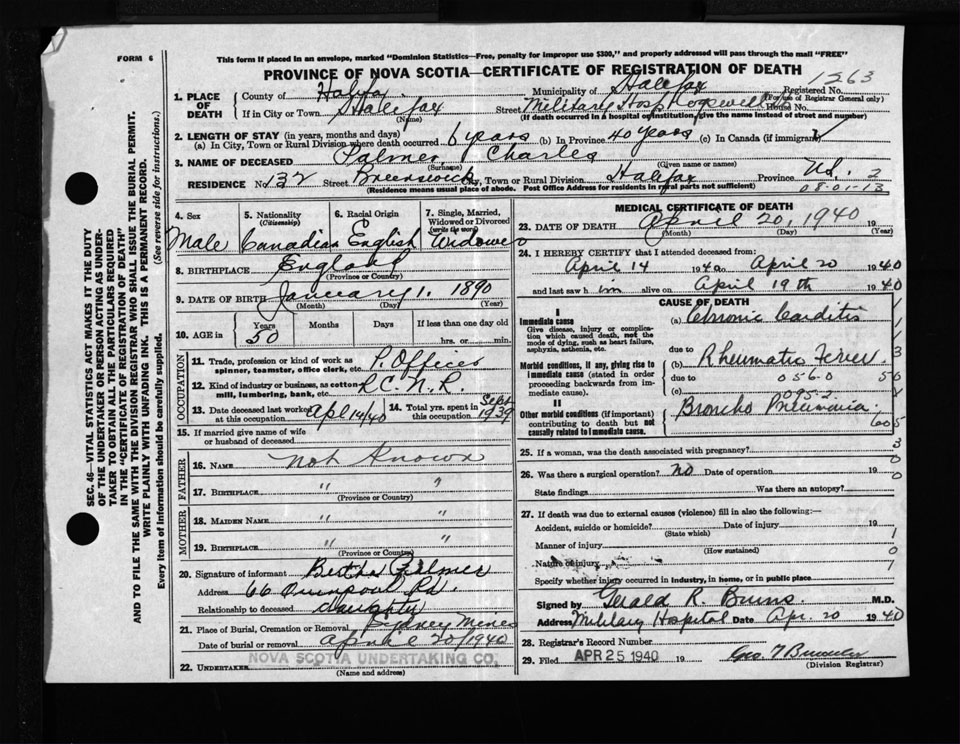 FORM 6
This form if placed in an envelope, marked "Dominion Statistics—Free, penalty for improper use $300," and properly addressed will pass through the mail "FREE"
PROVINCE OF NOVA SCOTIA—CERTIFICATE OF REGISTRATION OF DEATH
1263
SEC. 46—VITAL STATISTICS ACT MAKES IT THE DUTY
OF THE UNDERTAKER OR PERSON ACTING AS UNDER-
TAKER TO OBTAIN ALL THE PARTICULARS REQUIRED
IN THE "CERTIFICATE OF REGISTRATION OF DEATH"
AND TO FILE THE SAME WITH THE DIVISION REGISTRAR WHO SHALL ISSUE THE BURIAL PERMIT.
WRITE PLAINLY WITH UNFADING INK. THIS IS A PERMANENT RECORD.
Every item of information should be carefully supplied. (See reverse side for instructions.)
1. PLACE OF DEATH
County of Halifax Municipality of Halifax Registered No.
(For use of Registrar General only)
If in City or Town Halifax Street Military Hosp Cogswell House No.
(Name) (If death occurred in a hospital or institution, give the name instead of street and number)
2. LENGTH OF STAY (in years, months and days)
(a) In City, Town or Rural Division where death occurred 6 years (b) In Province 40 years (c) In Canada (if immigrant)
3. NAME OF DECEASED Palmer, Charles
(Surname) (Given name or names)
RESIDENCE No. 132 Street Brenswick City, Town or Rural Division Halifax Province N.S. 2
(Residence means usual place of abode. Post Office Address for residents in rural parts not sufficient)
08-01-13
4. Sex 5. Nationality (Citizenship) 6. Racial Origin 7. Single, Married, Widowed or Divorced (write the word)
Male Canadian English Widower
8. BIRTHPLACE England
(Province or Country)
9. DATE OF BIRTH January 1. 1890
(Month) (Day) (Year)
10. AGE in Years Months Days If less than one day old
50 hrs. or min.
OCCUPATION
11. Trade, profession or kind of work as spinner, teamster, office clerk, etc. P. Officer
12. Kind of industry or business, as cotton mill, lumbering, bank, etc. R.C.N.R.
13. Date deceased last worked at this occupation Apl 14/40 14. Total yrs. spent in this occupation Sept 1939
15. If married give name of wife or husband of deceased
FATHER
16. NAME not known
17. BIRTHPLACE " "
(Province or Country)
MOTHER
18. MAIDEN NAME " "
19. BIRTHPLACE " "
(Province or Country)
20. Signature of informant Bertha Palmer
Address 66 Quinpool Rd.
Relationship to deceased daughter
21. Place of Burial, Cremation or Removal Sydney Mines
Date of burial or removal April 20/1940
22. UNDERTAKER NOVA SCOTIA UNDERTAKING CO.
(Name and address)
MEDICAL CERTIFICATE OF DEATH
23. DATE OF DEATH April 20, 1940 19
(Month) (Day) (Year)
24. I HEREBY CERTIFY that I attended deceased from
April 14 1940 to April 20 1940
and last saw him alive on April 19th 1940
CAUSE OF DEATH
I
Immediate cause
Give disease, injury or complication which caused death, not the mode of dying, such as heart failure, asphyxia, asthenia, etc.
(a) Chronic Carditis
Morbid conditions, if any, giving rise to immediate cause (stated in order proceeding backwards from immediate cause).
due to Rheumatic Fever
due to 056-0
II
095-2
Other morbid conditions (if important) contributing to death but not causally related to immediate cause.
Broncho Pneumonia
25. If a woman, was the death associated with pregnancy?
26. Was there a surgical operation? No Date of operation 19
State findings Was there an autopsy?
27. If death was due to external causes (violence) fill in also the following:—
Accident, suicide or homicide? Date of injury 19
(State which)
Manner of injury
(How sustained)
Nature of injury
Specify whether injury occurred in industry, in home, or in public place
Signed by Gerald R. Burns. M.D.
Address Military Hospital Date Apr. 20 1940
28. Registrar's Record Number
29. Filed APR 25 1940 19
(Division Registrar)